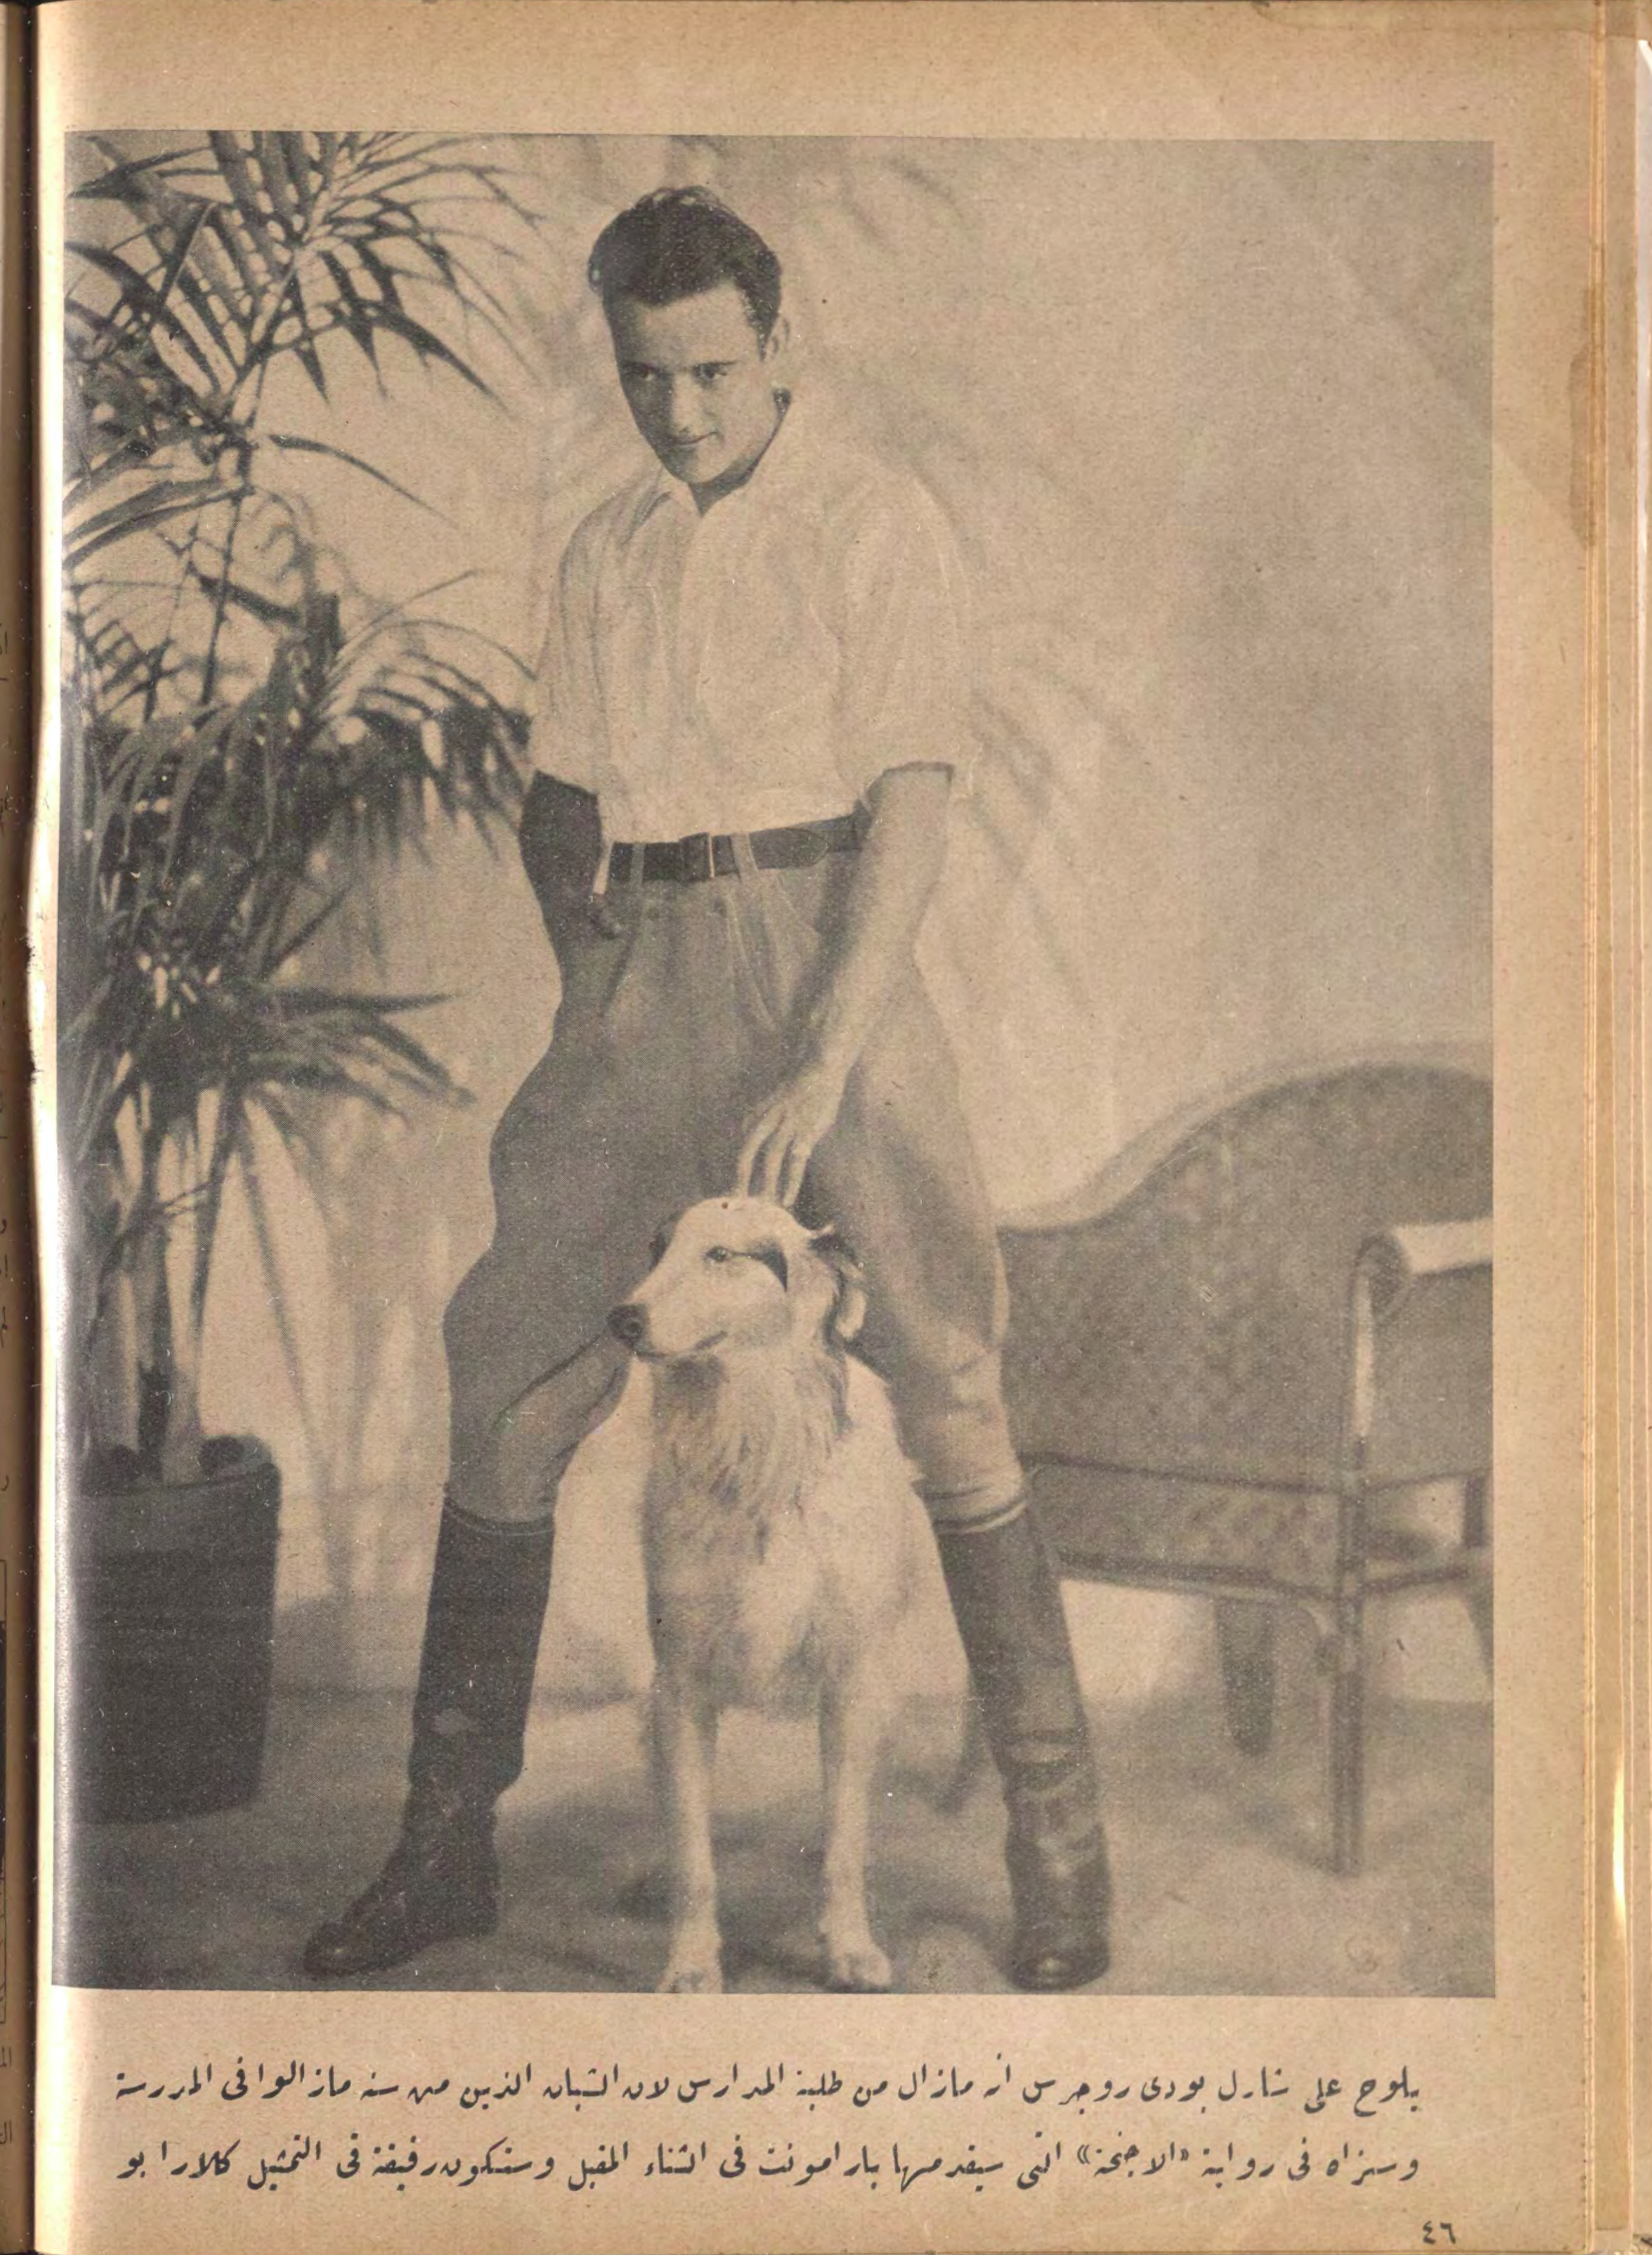 يلوح على شارل بودى روجرس انه مازال من طلبة المدارس لان الشبان الذين من سنه مازالوا فى المدرسة
وسنراه فى رواية «الاجنحة» التى سيقدمها بارامونت فى الشتاء المقبل وستكون رفيقته فى التمثيل كلارا بو
٤٦